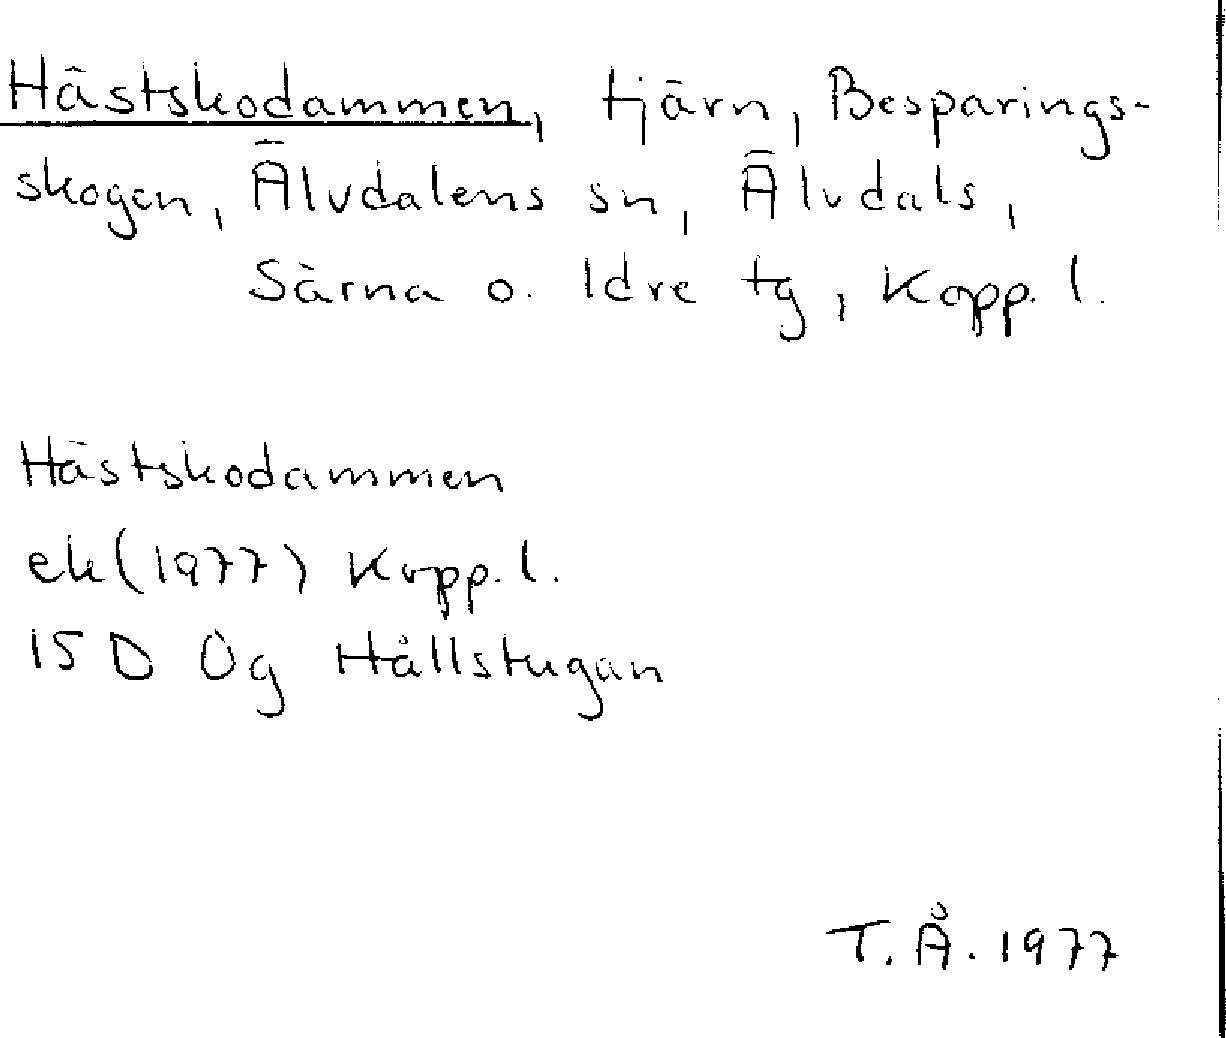 Hästskodammen, tjärn, Besparings-
skogen, Älvdalens sn, Älvdals,
Särna o. Idre tg, Kopp. l.
Hästskodammen
ek (1977) Kopp. l.
15 D 0g Hållstugan
T.Å. 1977